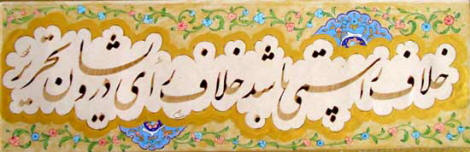 خلاف راستی باشد خلاف رای درویشان تحریر